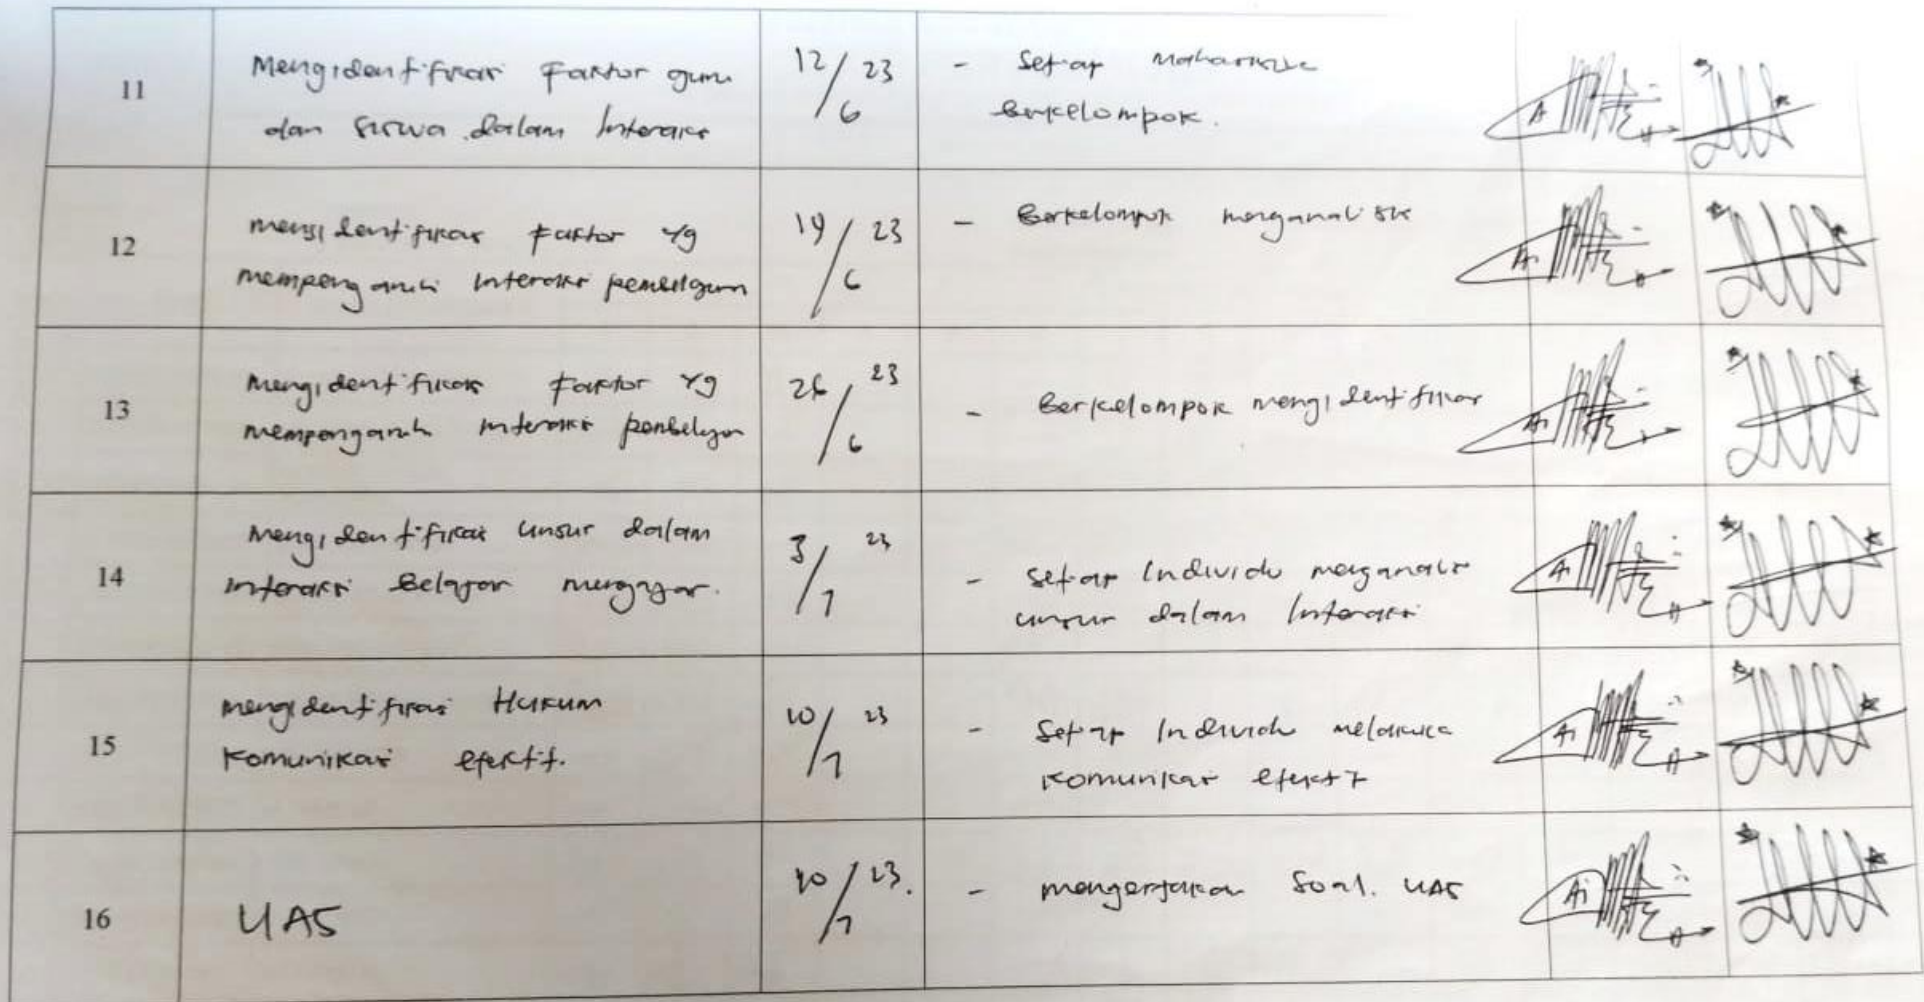 11
Mengidentifikasi Faktor guru
dan siswa dalam Interaksi
12/6 23
- Setiap Mahasiswa
berkelompok.
12
mengidentifikasi Faktor yg
mempengaruhi interaksi pembelajaran
19/6 23
- Berkelompok menganalisis
13
Mengidentifikasi Faktor yg
mempengaruhi interaksi pembelajaran
26/6 23
- Berkelompok mengidentifikasi
14
Mengidentifikasi unsur dalam
interaksi Belajar mengajar.
3/7 23
- Setiap Individu menganalisis
unsur dalam Interaksi
15
mengidentifikasi Hukum
Komunikasi efektif.
10/7 23
- Setiap Individu melakukan
Komunikasi efektif
16
UAS
10/7 23.
- mengerjakan Soal. UAS